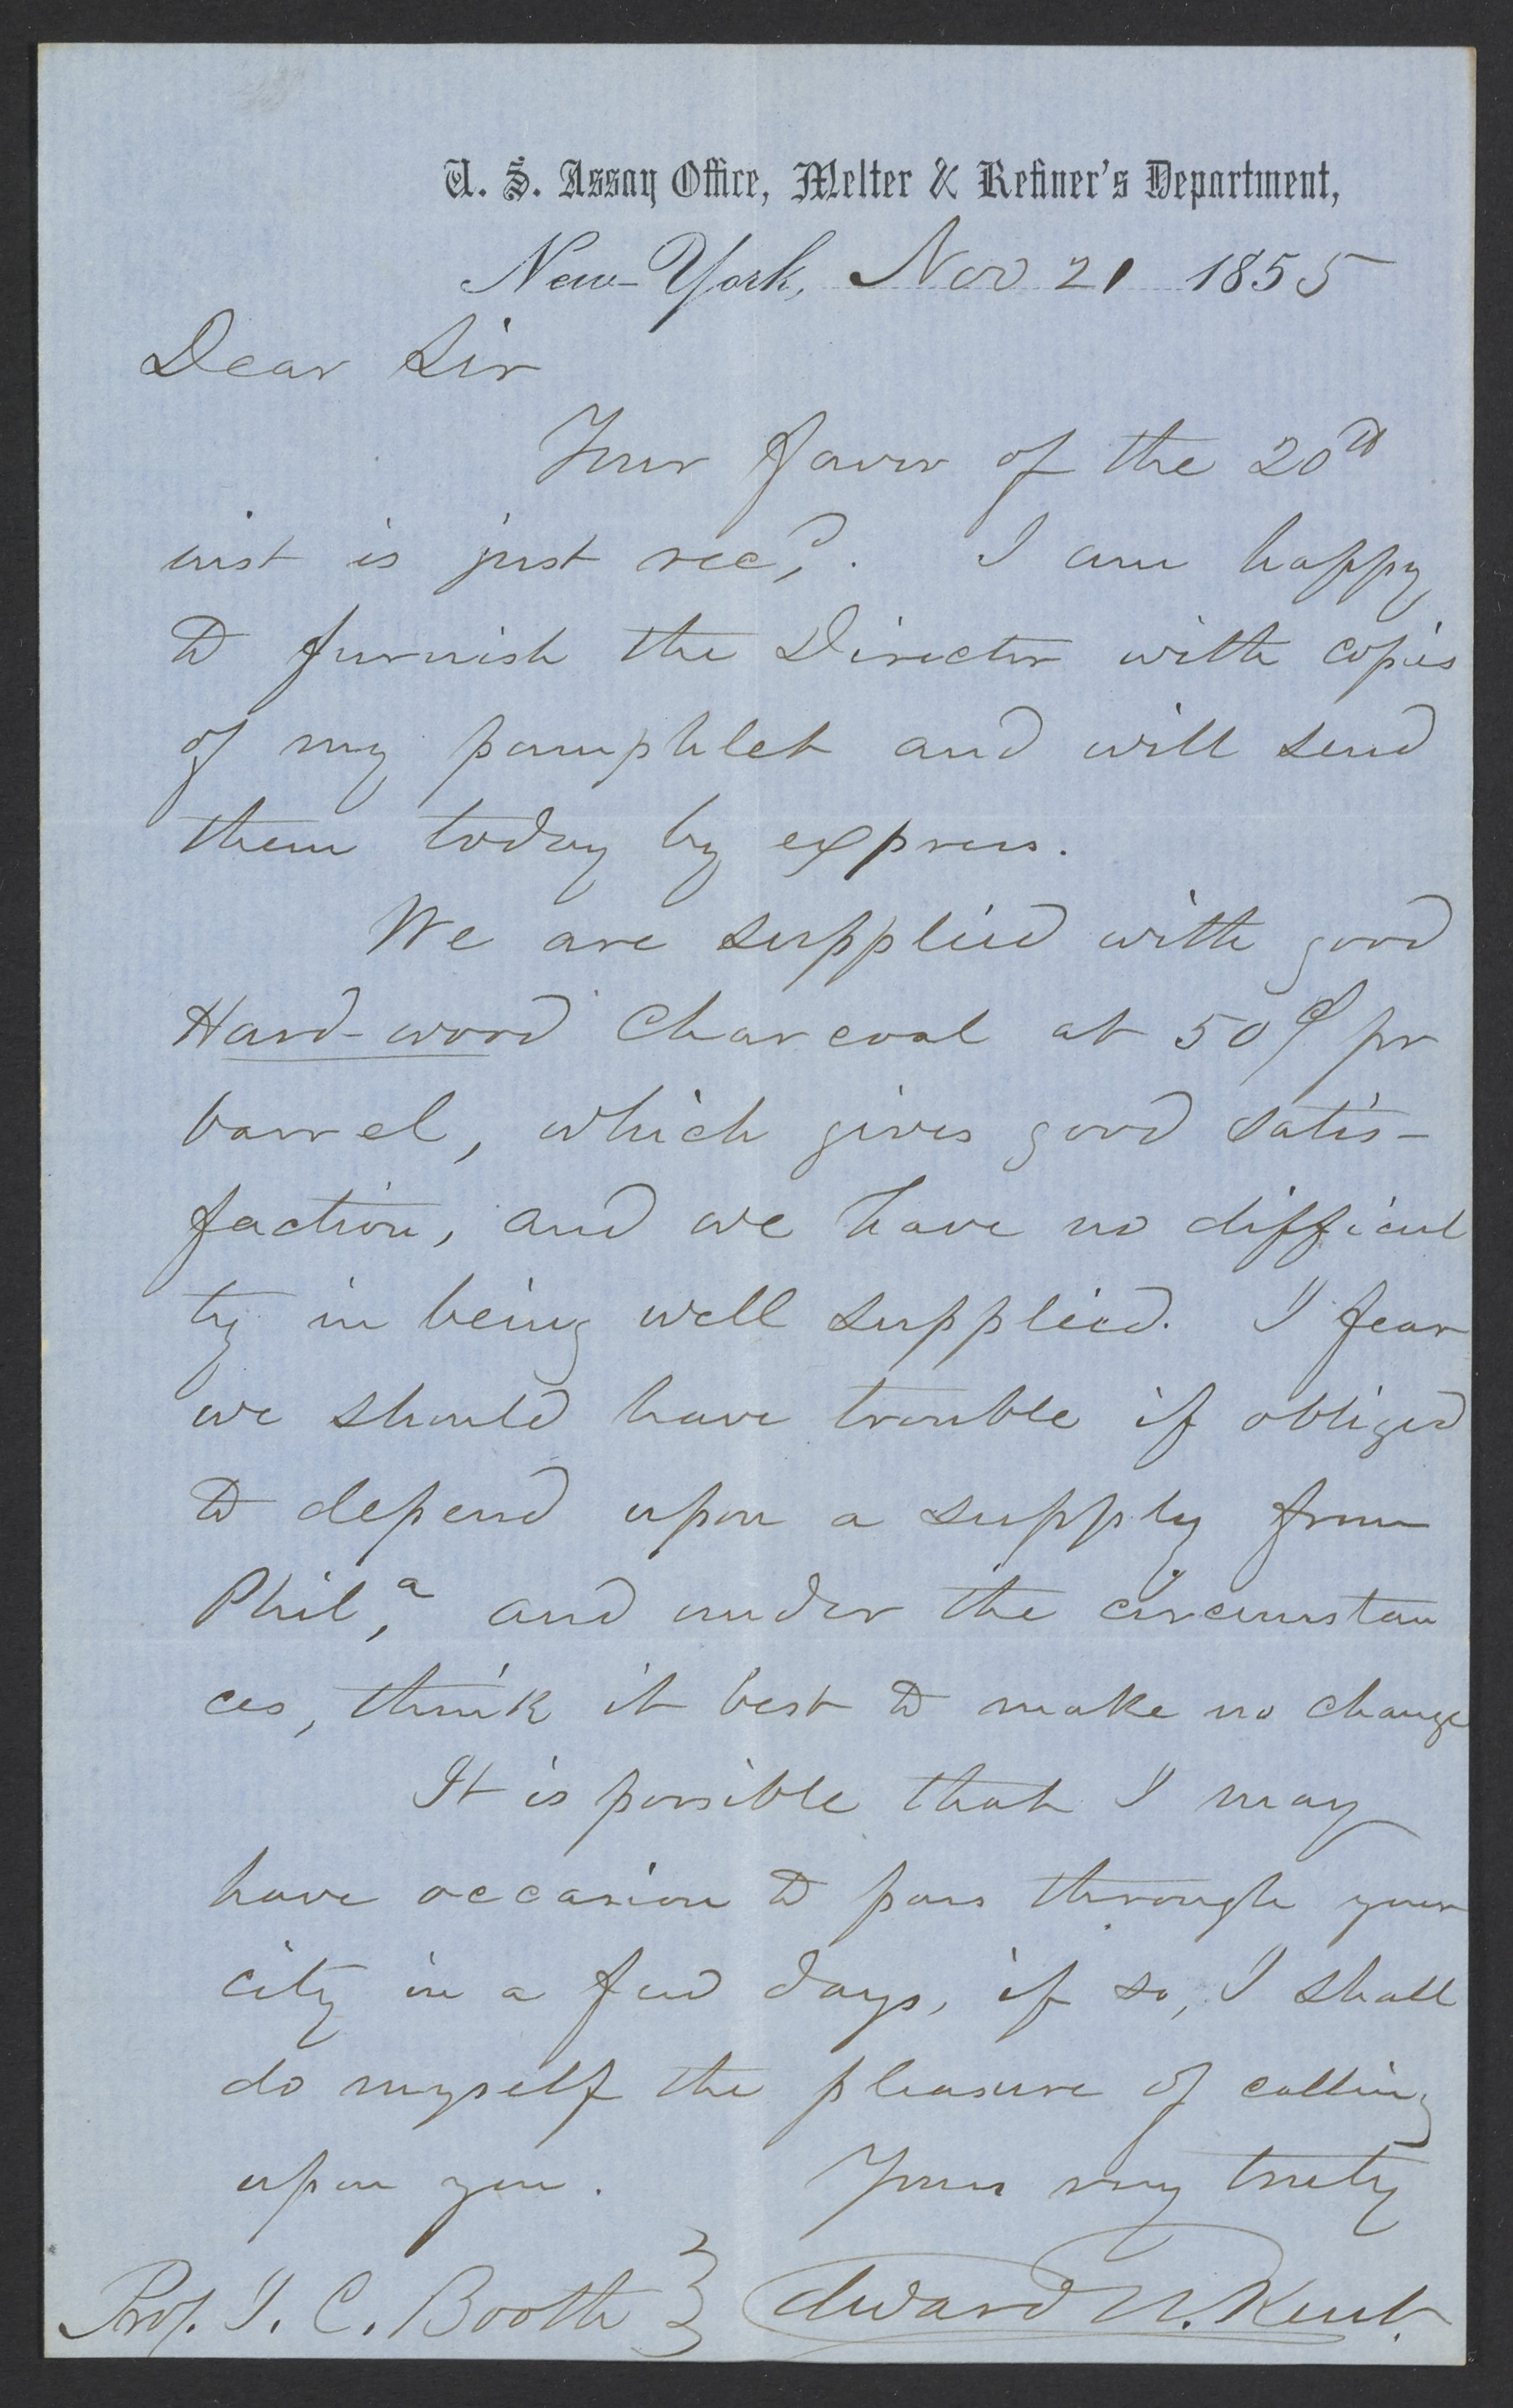 U. S. Assay Office, Melter & Refiner's Department,
New-York, Nov 21 1855
Dear Sir
Your favor of the 20th
inst is just rec,d. I am happy
to furnish the Director with copies
of my pamphlet and will send
them today by express.
We are supplied with good
Hard-wood Charcoal at 50¢ pr
barrel, which gives good satis-
faction, and we have no difficul
ty in being well supplied. I fear
we should have trouble if obliged
to depend upon a supply from
Phil,a and under the circumstan
ces, think it best to make no change
It is possible that I may
have occasion to pass through your
city in a few days, if so, I shall
do myself the pleasure of calling
upon you. Yours very truly
Prof. J. C. Booth } Edward N. Kent.